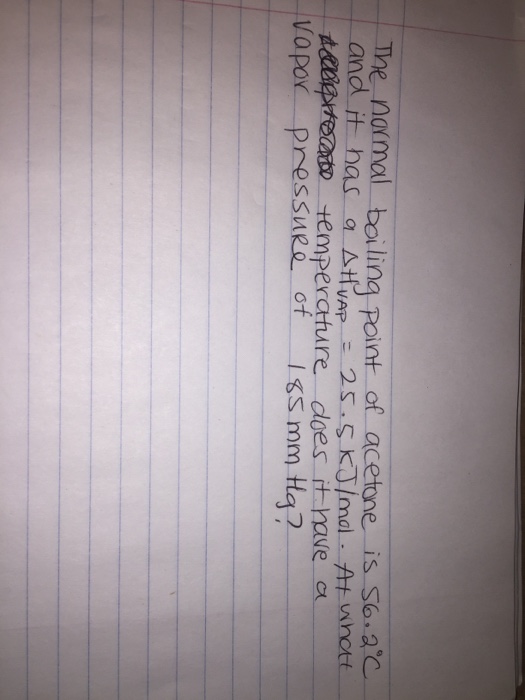 The normal boiling point of acetone is 56.2°C
and it has a ΔHVAP = 25.5 KJ/mol. At what
temperature does it have a
vapor pressure of 185 mm Hg?